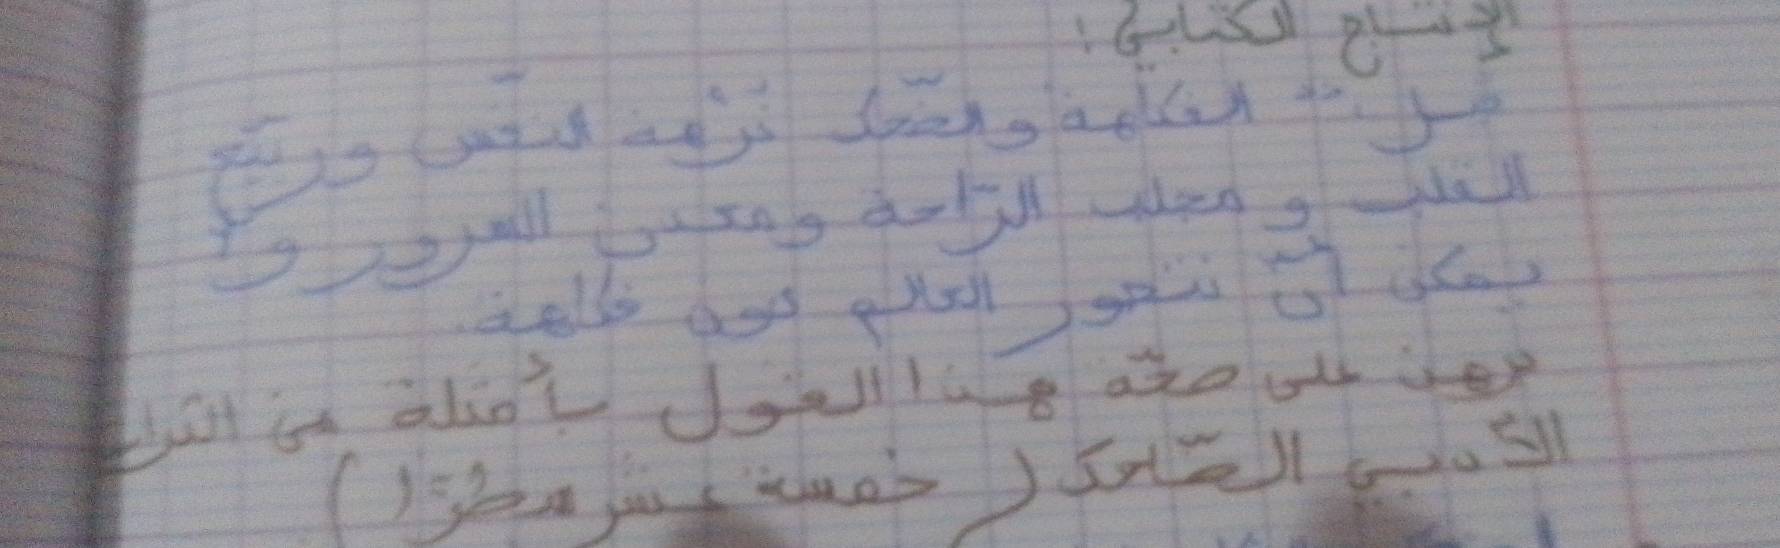 الإنتاج الكتابي:
قيل: " الفكاهة والضّحك نُزْهة النّفس وربيع
القلب و مجلب الرّاحة ومعدن السرور ولا
يمكن أن نتصور العالم دون فكاهة.
برهن على صحّة هذا القول بأمثلة من التراث
الأدبي الضّاحك ( خمسة عشر سطرًا )